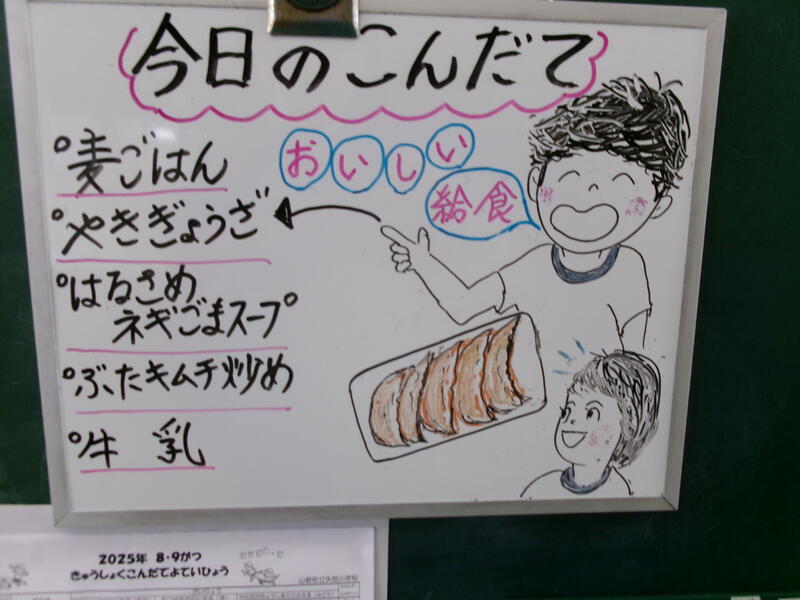 今日のこんだて
°麦ごはん
°やきぎょうざ
°はるさめ
ネギごまスープ
°ぶたキムチ炒め
°牛乳
おいしい
給食
2025年 8・9がつ
きゅうしょくこんだてよていひょう